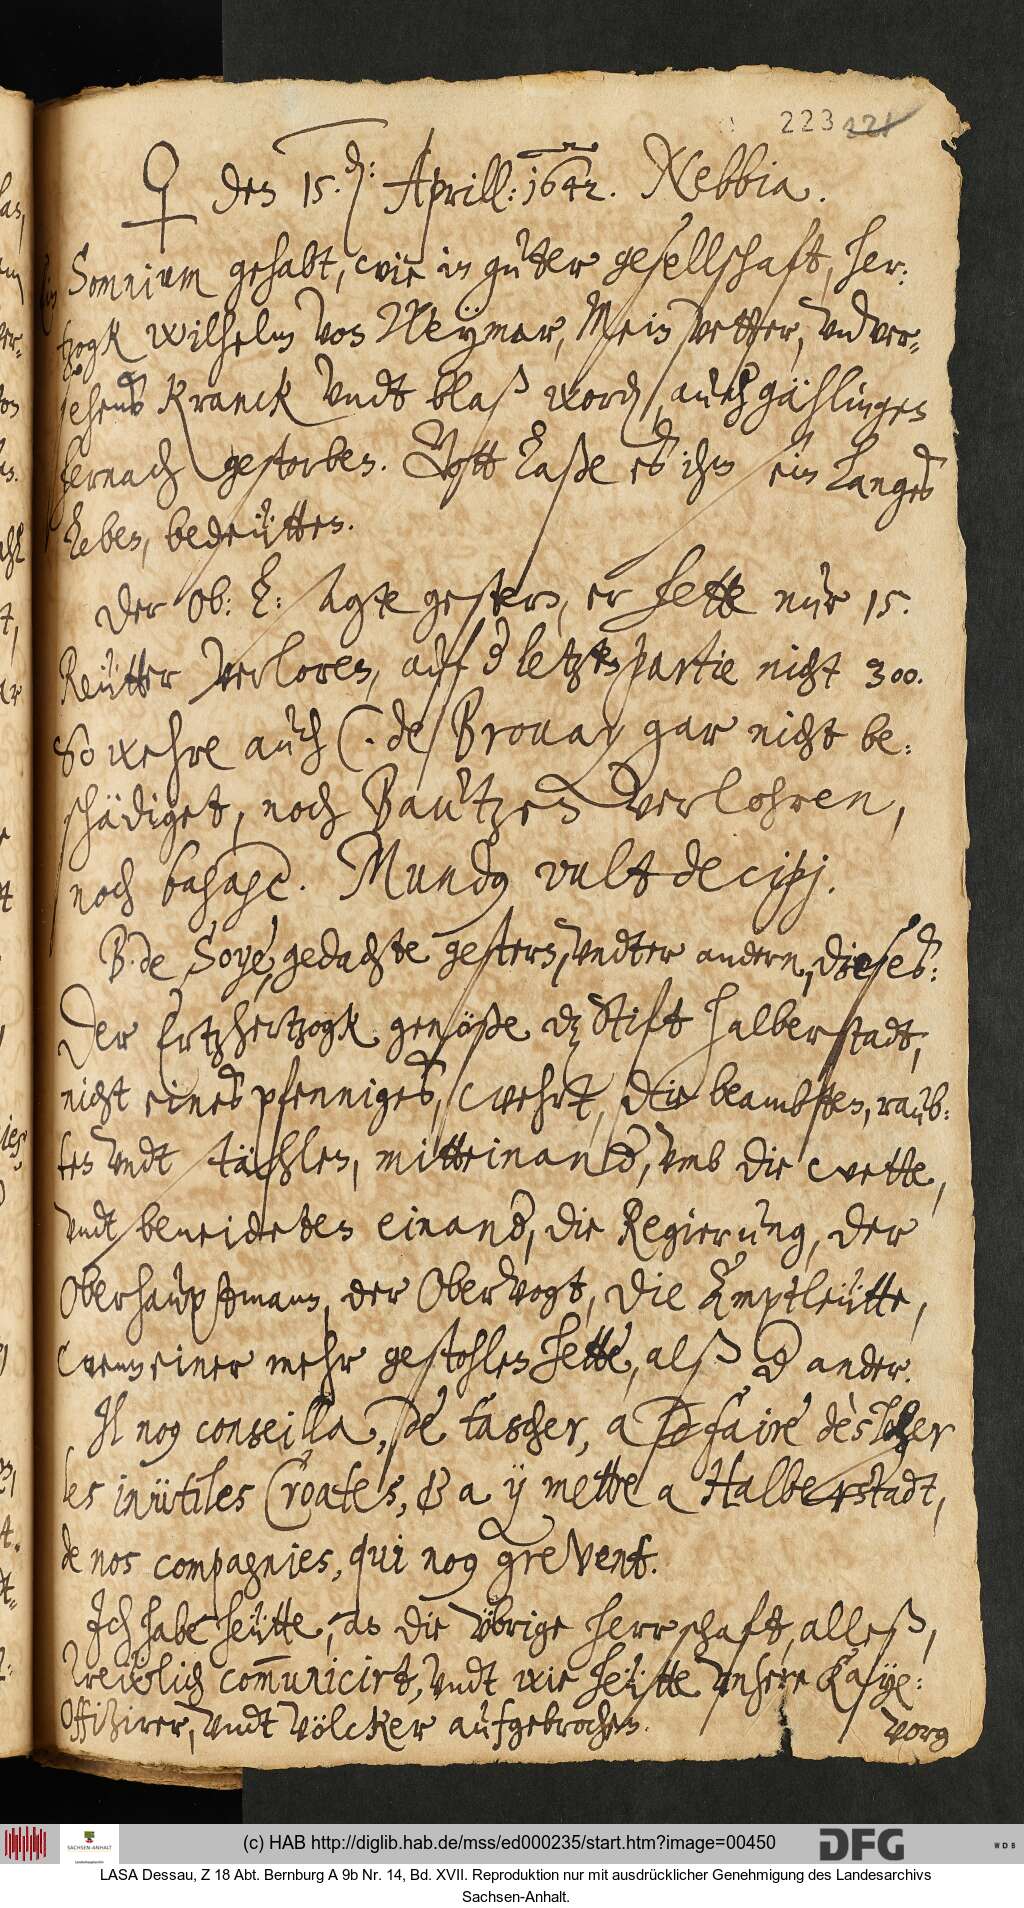 223 221
♀ den 15.den: Aprill: 1642. Nebbia.
Ein Somnium gehabt, wie in guter gesellschaft, Her:
tzogk Wilhelm von Weymar, Mein Vetter, vnver-
sehens kranck vndt blaß worden, auch gählingen
hernach gestorben. Gott laße es ihm ein langes
leben, bedeütten.
Der Ob: L: sagte gestern, er hette nur 15.
Reütter verloren, auf der letzten partie nicht 300.
So wehre auch C. de Brouay gar nicht be:
schädiget, noch Bautzen verlohren,
noch
Mundus vult decipj.
B. de Soyé, gedachte gestern, vndter andern, dieses:
Der Ertzhertzogk genöße dz Stift Halberstadt,
nicht eines pfenniges, wehrt, die beambten, raub-
ten vndt stählen, mitteinander, vmb die wette,
vndt beneideten einander, die Regierung, der
Oberhauptmann, der Obervogt, die Ämptleütte,
wenn einer mehr gestohlen hette, alß der ander.
Il nous conseilla, de tascher, a se faire deslicher
les inütiles Croates, & a ÿ mettre a Halberstadt,
de nos compagnies, qui nous grevent.
Ich habe heütte, an die übrige herrschaft, alleß,
treülich com̅unicirt, vndt wie heütte vnsere Kaÿ:
Offizirer, vndt völcker aufgebrochen.
vorg
(c) HAB http://diglib.hab.de/mss/ed000235/start.htm?image=00450
SACHSEN-ANHALT
DFG
WDB
LASA Dessau, Z 18 Abt. Bernburg A 9b Nr. 14, Bd. XVII. Reproduktion nur mit ausdrücklicher Genehmigung des Landesarchivs
Sachsen-Anhalt.